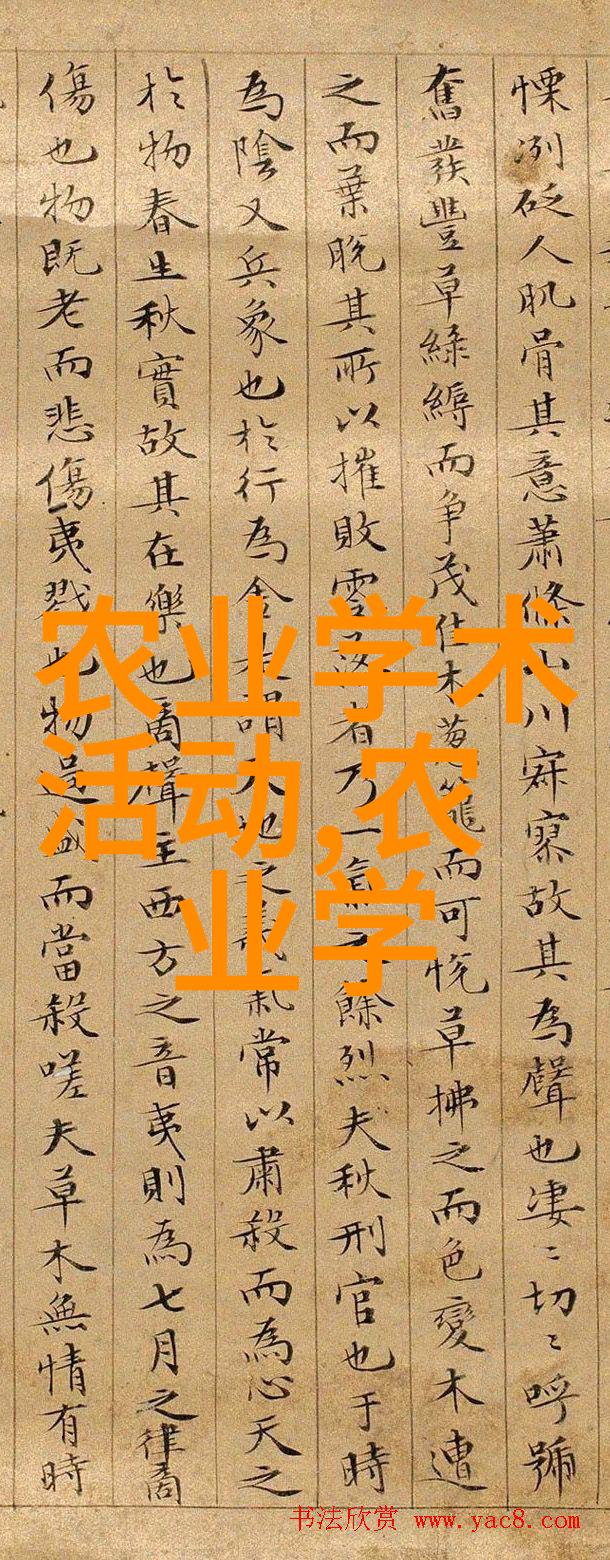 慄冽砭人肌骨其意蕭條山川寂寥故其為聲也淒〻切〻呼號
奮發豐草綠縟而争茂佳木葱籠而可悅草拂之而色變木遭
之而葉脫其所以摧敗零落者乃一氣之餘烈夫秋刑官也于時
為陰又兵象也於行為金是謂天地之義氣常以肅殺而為心天之
於物春生秋實故其在樂也商聲主西方之音夷則為七月之律商
傷也物既老而悲傷夷戮也物過盛而當殺嗟夫草木無情有時
农业学术
活动,农
业学
书法欣赏 www.yac8.com